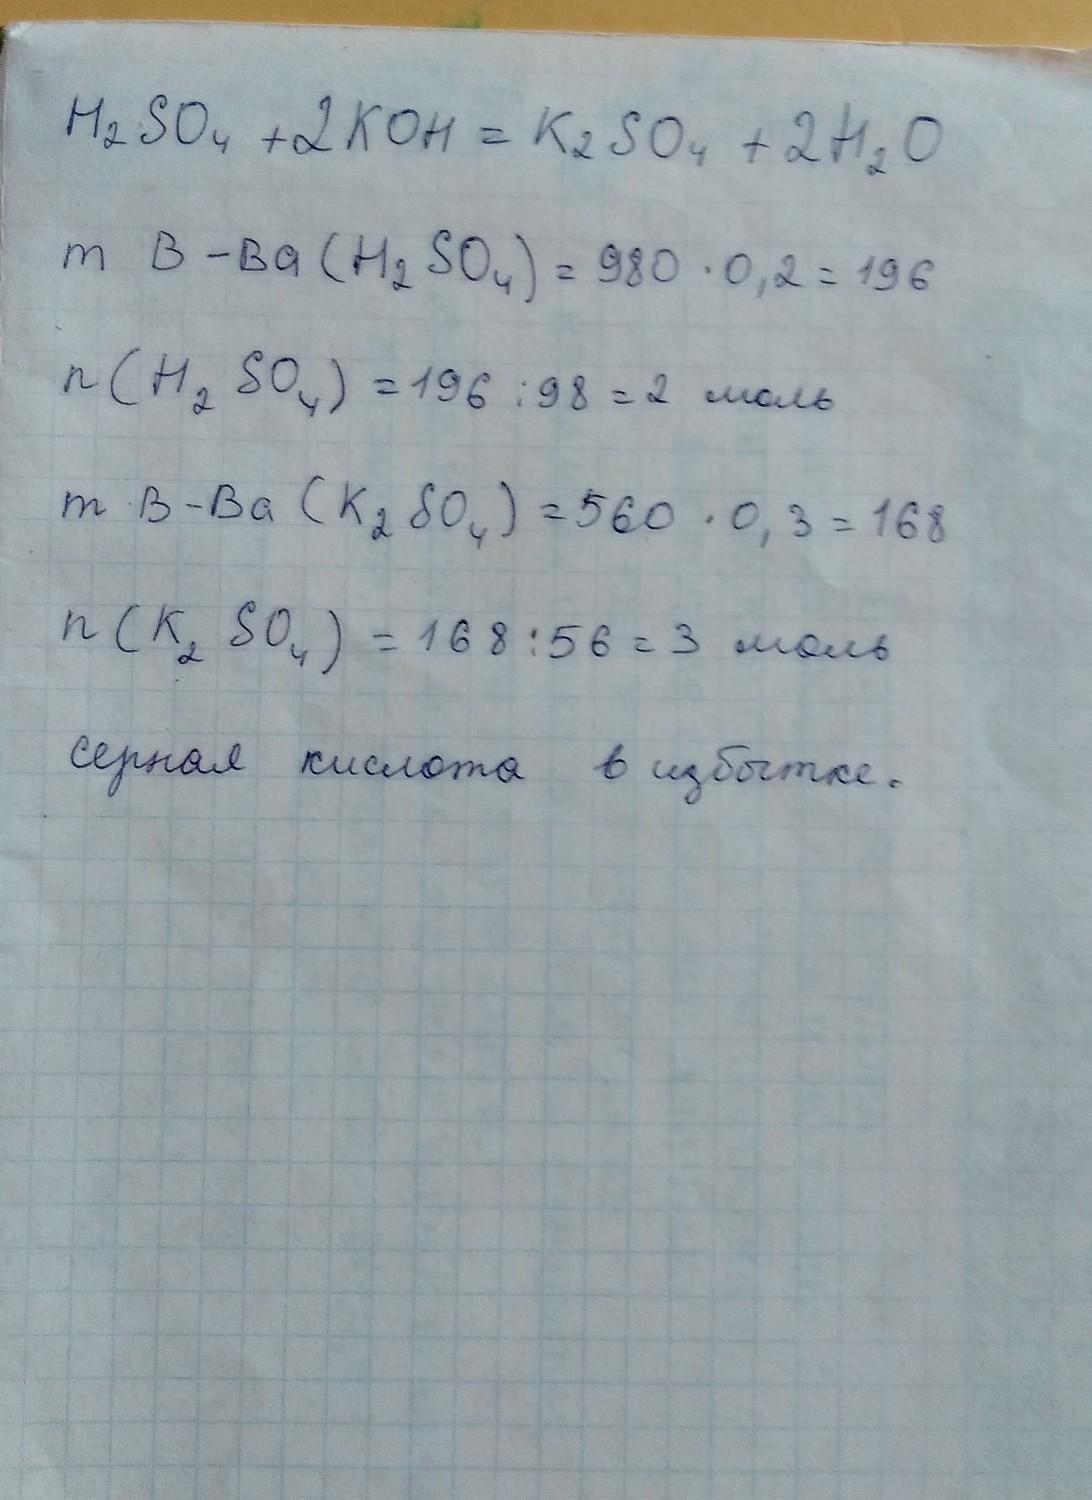 H₂SO₄ + 2KOH = K₂SO₄ + 2H₂O
m В-Ва (H₂SO₄) = 980 · 0,2 = 196
n (H₂SO₄) = 196 : 98 = 2 моль
m В-Ва (K₂SO₄) = 560 · 0,3 = 168
n (K₂SO₄) = 168 : 56 = 3 моль
серная кислота в избытке.